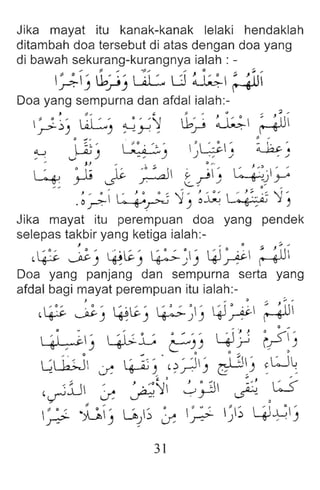 Jika mayat itu kanak-kanak lelaki hendaklah
ditambah doa tersebut di atas dengan doa yang
di bawah sekurang-kurangnya ialah : -
اَللّٰهُمَّ اجْعَلْهُ لَنَا سَلَفًا وَفَرَطًا وَأَجْرًا
Doa yang sempurna dan afdal ialah:-
اَللّٰهُمَّ اجْعَلْهُ فَرَطًا لِأَبَوَيْهِ وَسَلَفًا وَذُخْرًا
وَعِظَةً وَاعْتِبَارًا وَشَفِيعًا وَثَقِّلْ بِهِ
مَوَازِينَهُمَا وَأَفْرِغِ الصَّبْرَ عَلَى قُلُوبِهِمَا
وَلَا تَفْتِنْهُمَا بَعْدَهُ وَلَا تَحْرِمْهُمَا أَجْرَهُ.
Jika mayat itu perempuan doa yang pendek
selepas takbir yang ketiga ialah:-
اَللّٰهُمَّ اغْفِرْ لَهَا وَارْحَمْهَا وَعَافِهَا وَاعْفُ عَنْهَا،
Doa yang panjang dan sempurna serta yang
afdal bagi mayat perempuan itu ialah:-
اَللّٰهُمَّ اغْفِرْ لَهَا وَارْحَمْهَا وَعَافِهَا وَاعْفُ عَنْهَا،
وَأَكْرِمْ نُزُلَهَا وَوَسِّعْ مَدْخَلَهَا وَاغْسِلْهَا
بِالْمَاءِ وَالثَّلْجِ وَالْبَرَدِ، وَنَقِّهَا مِنَ الْخَطَايَا
كَمَا يُنَقَّى الثَّوْبُ الْأَبْيَضُ مِنَ الدَّنَسِ،
وَأَبْدِلْهَا دَارًا خَيْرًا مِنْ دَارِهَا وَأَهْلًا خَيْرًا
31